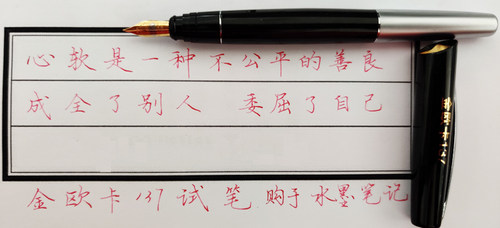 心软是一种不公平的善良
成全了别人 委屈了自己
金欧卡137试笔 购于水墨笔记